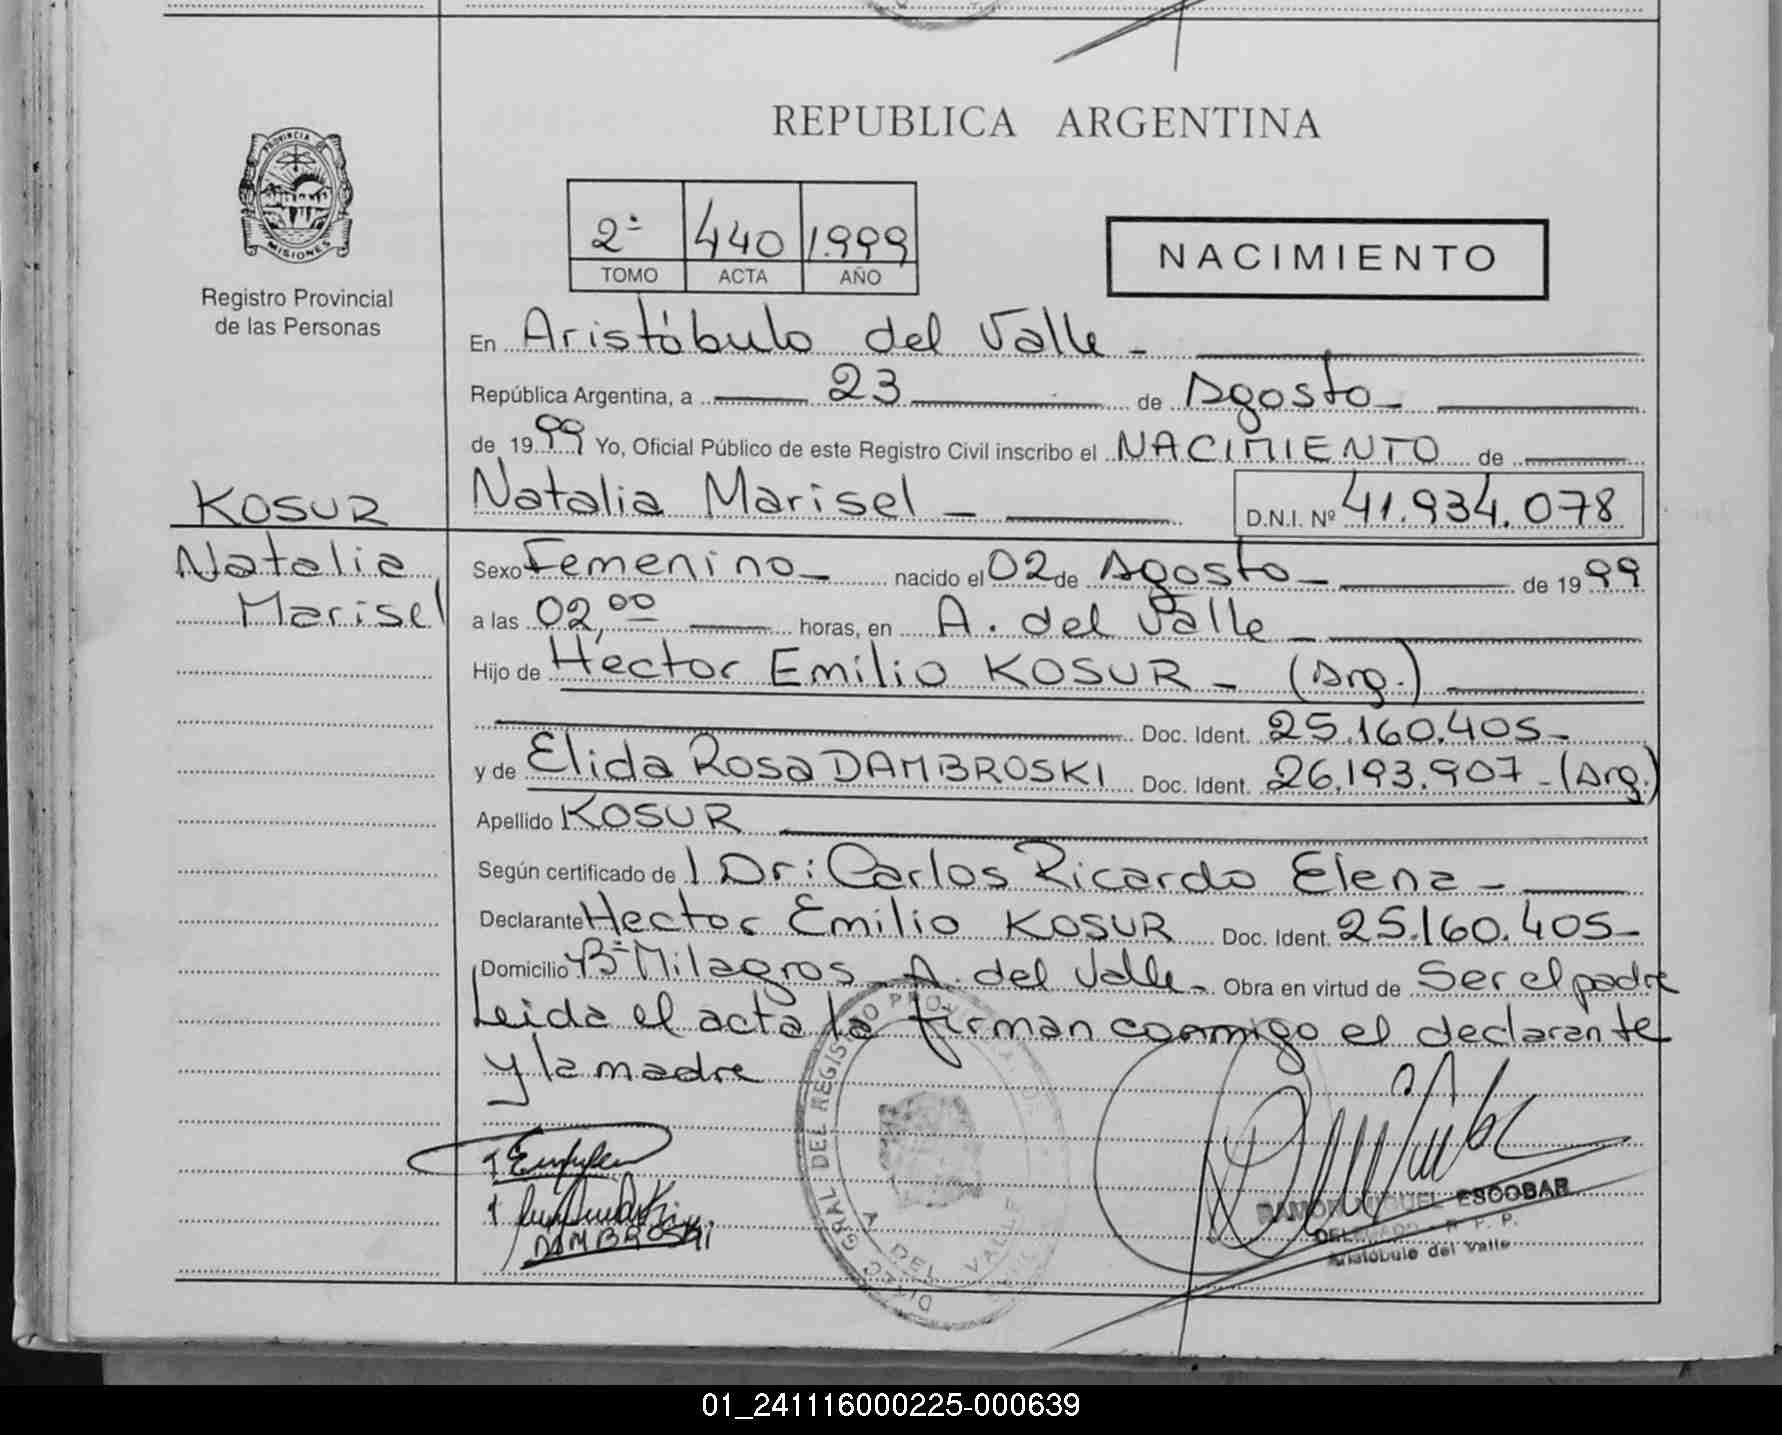 REPUBLICA ARGENTINA
PROVINCIA
MISIONES
Registro Provincial
de las Personas
2ª 440 1.999
TOMO ACTA AÑO
NACIMIENTO
En Aristóbulo del Valle -
República Argentina, a 23 de Agosto -
de 1999 Yo, Oficial Público de este Registro Civil inscribo el NACIMIENTO de
KOSUR
Natalia
Marisel
Natalia Marisel - D.N.I. Nº 41.934.078
Sexo Femenino - nacido el 02 de Agosto - de 1999
a las 02,00 horas, en A. del Valle -
Hijo de Hector Emilio KOSUR - (Arg.)
Doc. Ident. 25.160.405 -
y de Elida Rosa DAMBROSKI Doc. Ident. 26.193.907 - (Arg.)
Apellido KOSUR
Según certificado de l Dr: Carlos Ricardo Elena -
Declarante Hector Emilio KOSUR Doc. Ident. 25.160.405 -
Domicilio Bº Milagros - A. del Valle - Obra en virtud de Ser el padre
Leida el acta la firman conmigo el declarante
y la madre
DAMBROSKI
DIREC. GRAL. DEL REGISTRO
A. DEL VALLE
RAMON MIGUEL ESCOBAR
DELEGADO - R. P. P.
Aristóbulo del Valle
01_241116000225-000639